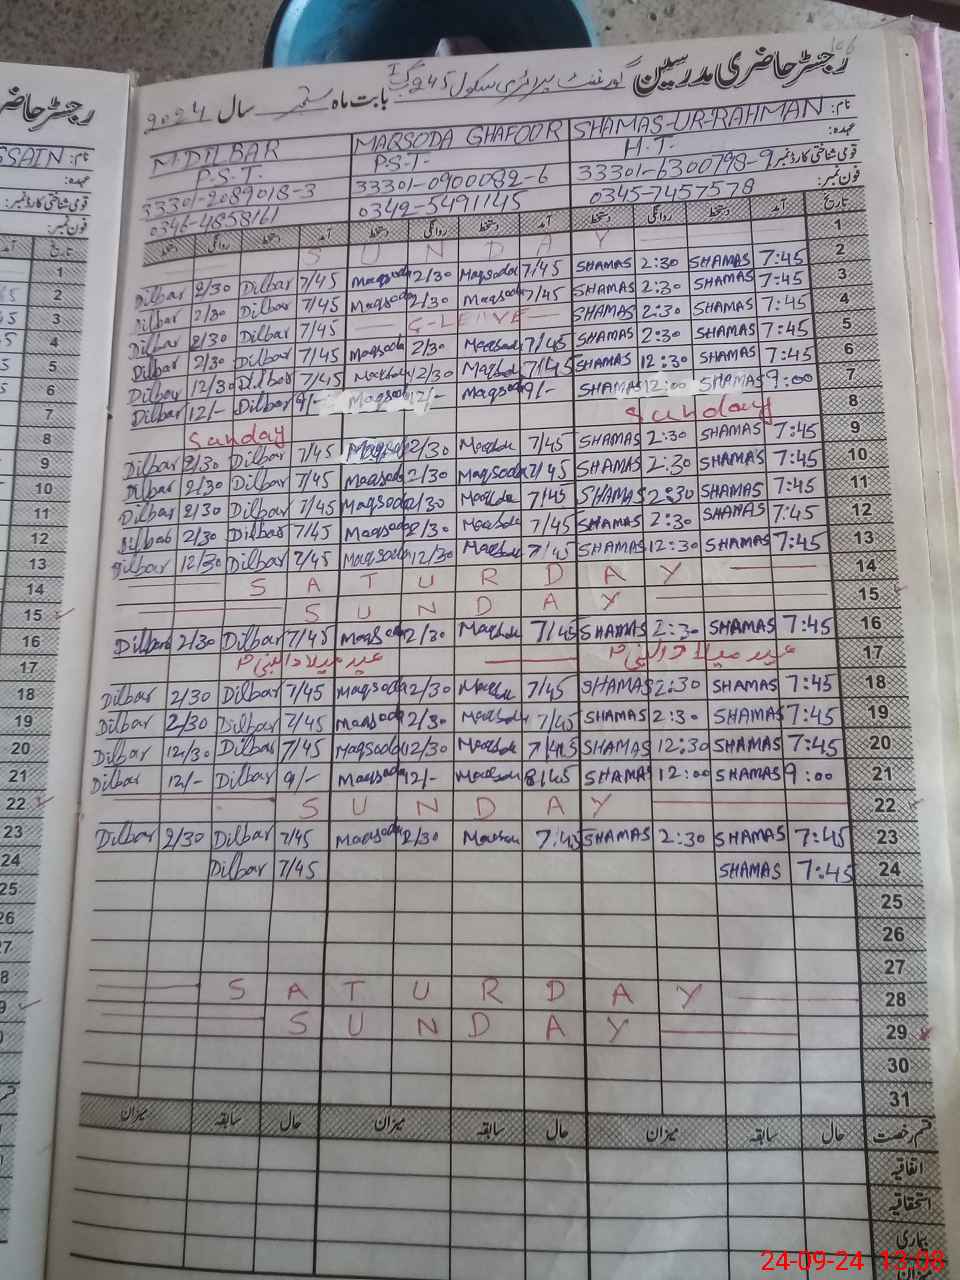 رجسٹر حاضری مدرسین گورنمنٹ پرائمری سکول 245 گ ب I بابت ماہ ستمبر سال 2024
نام: SHAMAS-UR-RAHMAN MAQSODA GHAFOOR M.DILBAR
عہدہ: H.T. P.S.T. P.S.T.
قومی شناختی کارڈ نمبر: 33301-6300798-9 33301-0900082-6 33301-2089018-3
فون نمبر: 0345-7457578 0342-5491145 0346-4858161
تاریخ آمد دستخط روانگی دستخط آمد دستخط روانگی دستخط آمد دستخط روانگی دستخط
1 S U N D A Y
2 7:45 SHAMAS 2:30 SHAMAS 7/45 Maqsoda 2/30 Maqsoda 7/45 Dilbar 2/30 Dilbar
3 7:45 SHAMAS 2:30 SHAMAS 7/45 Maqsoda 2/30 Maqsoda 7/45 Dilbar 2/30 Dilbar
4 7:45 SHAMAS 2:30 SHAMAS 7/45 Dilbar 2/30 Dilbar
5 7:45 SHAMAS 2:30 SHAMAS 7/45 Maqsoda 2/30 Maqsoda 7/45 Dilbar 2/30 Dilbar
6 7:45 SHAMAS 12:30 SHAMAS 7/45 Maqsoda 12/30 Maqsoda 7/45 Dilbar 12/30 Dilbar
7 9:00 SHAMAS 12:00 SHAMAS 9/- Maqsoda 12/- Maqsoda 9/- Dilbar 12/- Dilbar
8 Sunday Sunday
9 7:45 SHAMAS 2:30 SHAMAS 7/45 Maqsoda 2/30 Maqsoda 7/45 Dilbar 2/30 Dilbar
10 7:45 SHAMAS 2:30 SHAMAS 7/45 Maqsoda 2/30 Maqsoda 7/45 Dilbar 2/30 Dilbar
11 7:45 SHAMAS 2:30 SHAMAS 7/45 Maqsoda 2/30 Maqsoda 7/45 Dilbar 2/30 Dilbar
12 7:45 SHAMAS 2:30 SHAMAS 7/45 Maqsoda 2/30 Maqsoda 7/45 Dilbar 2/30 Dilbar
13 7:45 SHAMAS 12:30 SHAMAS 7/45 Maqsoda 12/30 Maqsoda 7/45 Dilbar 12/30 Dilbar
14 S A T U R D A Y
15 S U N D A Y
16 7:45 SHAMAS 2:30 SHAMAS 7/45 Maqsoda 2/30 Maqsoda 7/45 Dilbar 2/30 Dilbar
17 عید میلاد النبی عید میلاد النبی
18 7:45 SHAMAS 2:30 SHAMAS 7/45 Maqsoda 2/30 Maqsoda 7/45 Dilbar 2/30 Dilbar
19 7:45 SHAMAS 2:30 SHAMAS 7/45 Maqsoda 2/30 Maqsoda 7/45 Dilbar 2/30 Dilbar
20 7:45 SHAMAS 12:30 SHAMAS 7/45 Maqsoda 12/30 Maqsoda 7/45 Dilbar 12/30 Dilbar
21 9:00 SHAMAS 12:00 SHAMAS 8/45 Maqsoda 12/- Maqsoda 9/- Dilbar 12/- Dilbar
22 S U N D A Y
23 7:45 SHAMAS 2:30 SHAMAS 7:45 Maqsoda 2/30 Maqsoda 7/45 Dilbar 2/30 Dilbar
24 7:45 SHAMAS 7/45 Dilbar
25
26
27
28 S A T U R D A Y
29 S U N D A Y
30
31
قسم رخصت حال سابقہ میزان حال سابقہ میزان حال سابقہ میزان
اتفاقیہ
استحقاقیہ
بیماری
میزان
24-09-24 13:08